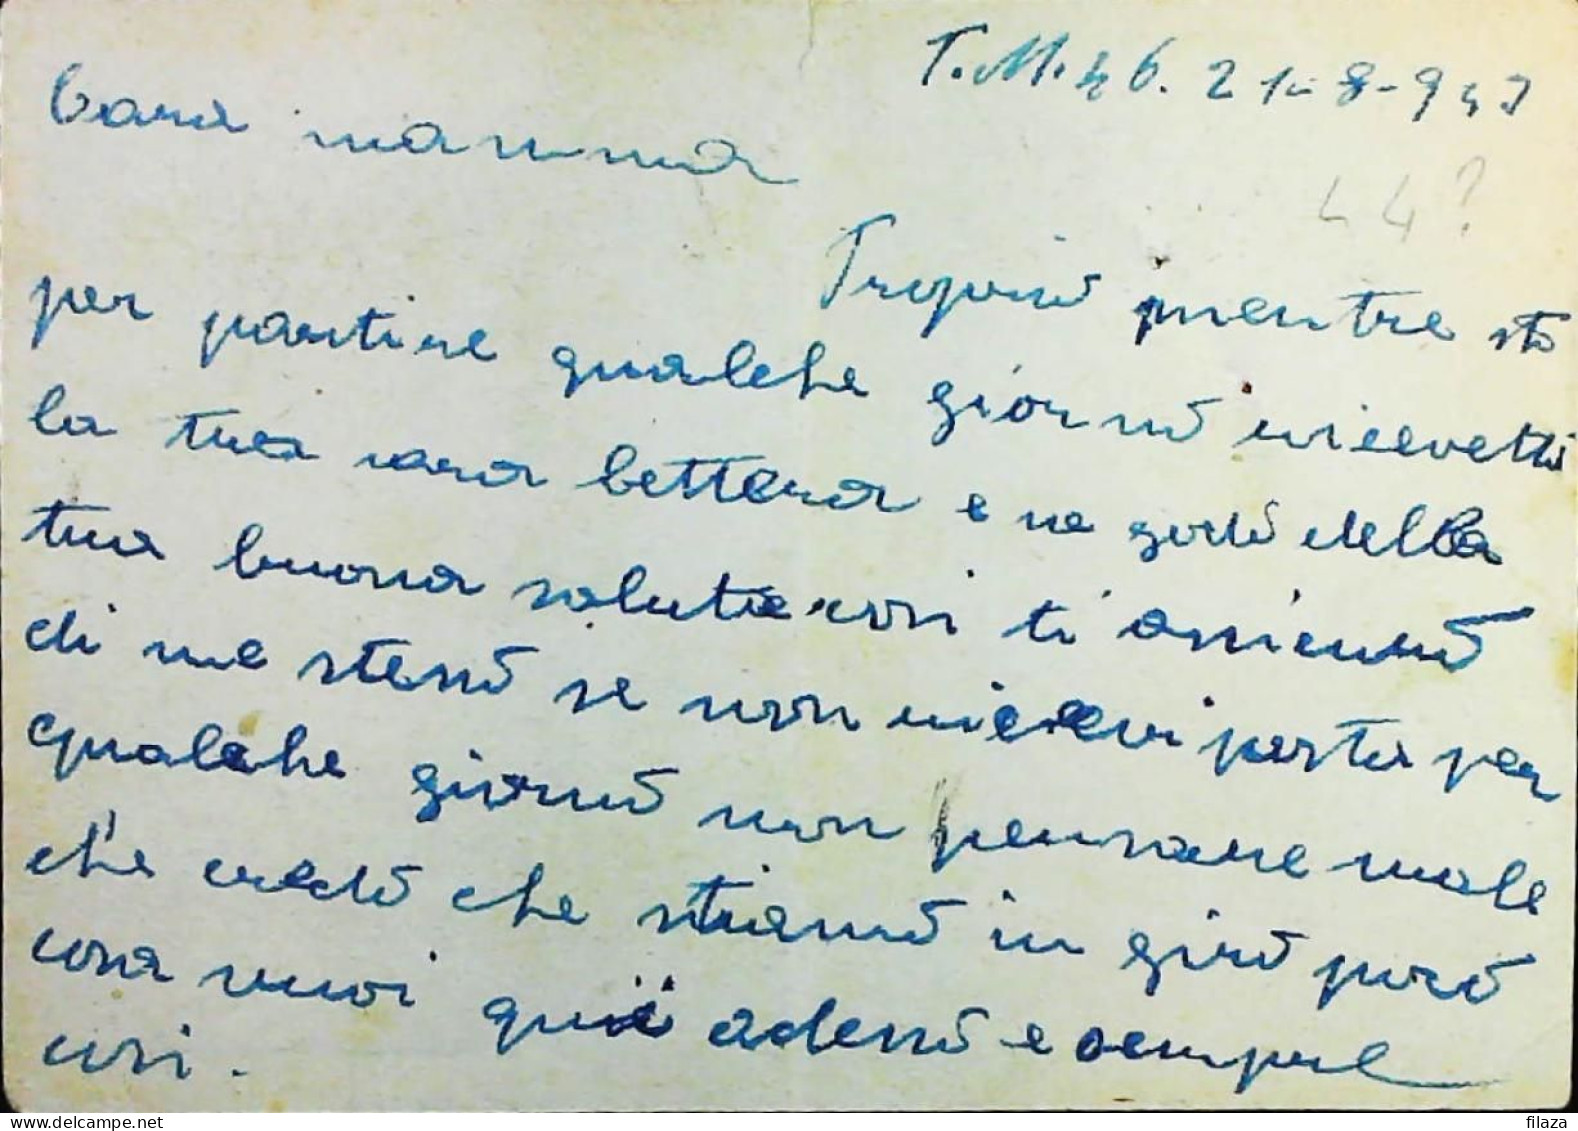 T.M. 46. 21-8-943
Cara mamma
44?
Proprio mentre sto
per partire qualche giorno ricevetti
la tua cara lettera e ne godo della
tua buona salute così ti assicuro
di me stesso se non ricevi posta per
qualche giorno non pensare male
che credo che stiamo in giro però
cosa vuoi qui adesso e sempre
così.
delcampe.net
filaza